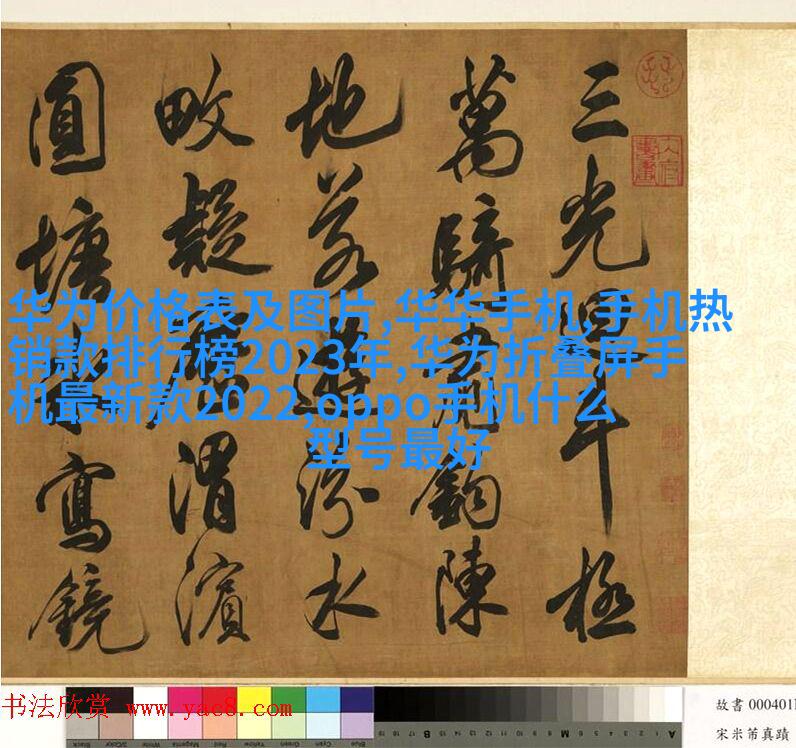 三光斗極
萬騎鉤陳
地若遊汾水
畋疑渭濱
圓塘寫鏡
华为价格表及图片,华华手机,手机热
销款排行榜2023年,华为折叠屏手
机最新款2022,oppo手机什么
型号最好
书法欣赏 www.yac8.com
故書 000401
宋米芾真蹟